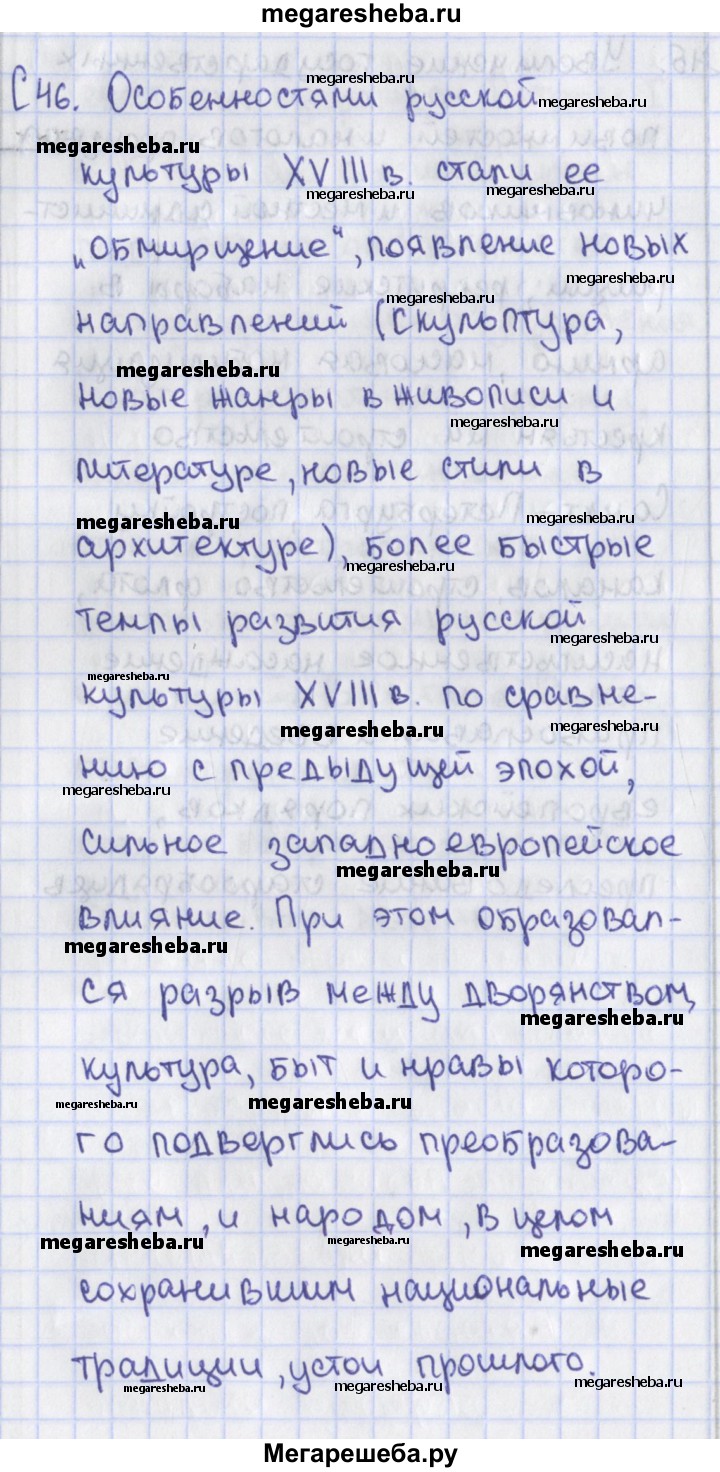 megaresheba.ru
С 46. Особенностями русской
культуры XVIII в. стали ее
„обмирщение“, появление новых
направлений (скульптура,
новые жанры в живописи и
литературе, новые стили в
архитектуре), более быстрые
темпы развития русской
культуры XVIII в. по сравне-
нию с предыдущей эпохой,
сильное западноевропейское
влияние. При этом образовал-
ся разрыв между дворянством,
культура, быт и нравы которо-
го подверглись преобразова-
ниям, и народом, в целом
сохранившим национальные
традиции, устои прошлого.
Мегарешеба.ру